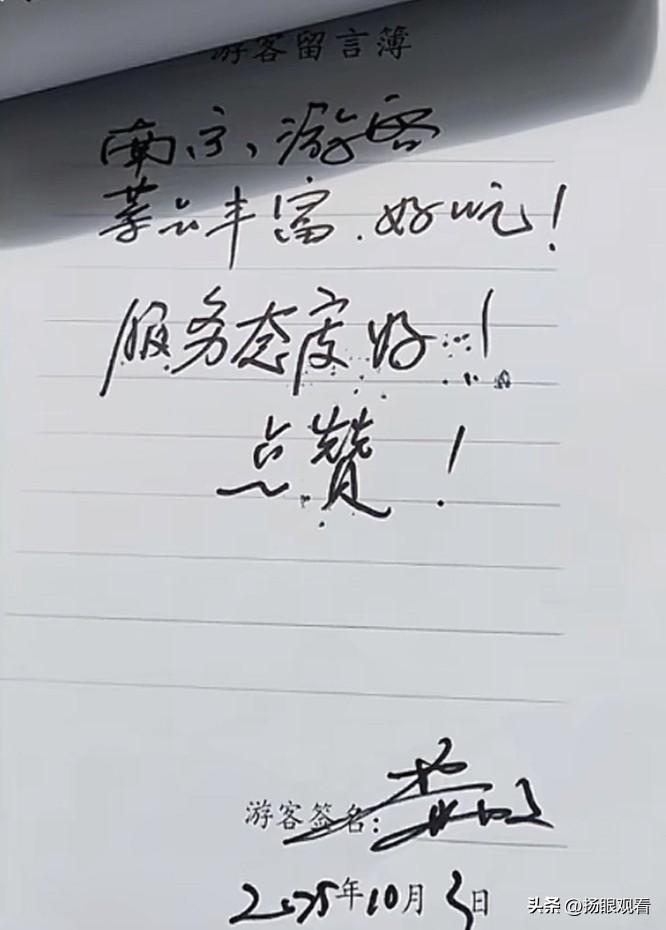 游客留言簿
南京、游客
菜品丰富.好吃!
服务态度好!
点赞!
游客签名:
2025年10月3日
头条 @扬眼观看